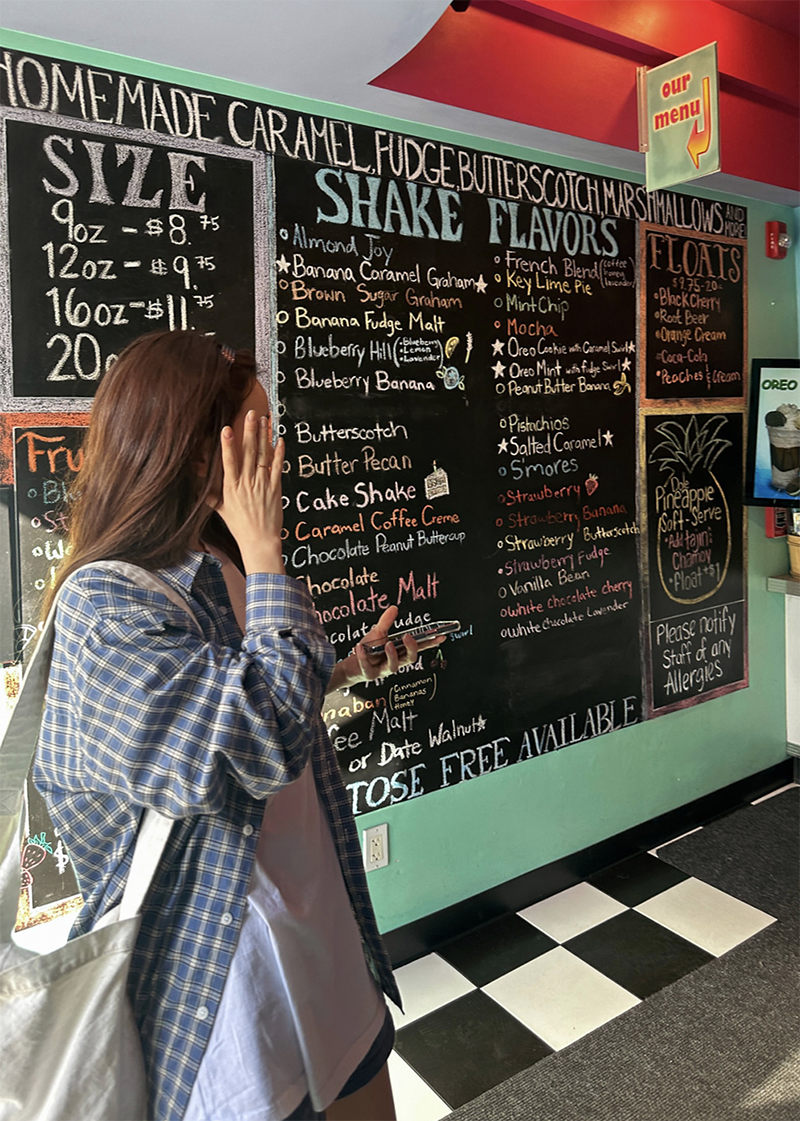 HOMEMADE CARAMEL, FUDGE, BUTTERSCOTCH, MARSHMALLOWS AND MORE
our
menu
SIZE
9oz - $8.75
12oz - $9.75
16oz - $11.75
20o
Fru
SHAKE FLAVORS
Almond Joy
Banana Caramel Graham
Brown Sugar Graham
Banana Fudge Malt
Blueberry Hill (Blueberry
Lemon
Lavender)
Blueberry Banana
Butterscotch
Butter Pecan
Cake Shake
Caramel Coffee Creme
Chocolate Peanut Buttercup
Chocolate
Chocolate Malt
ocolate Fudge
Swirl
mond
naban (Cinnamon
Bananas
Honey)
ee Malt
or Date Walnut
French Blend (coffee
honey
lavender)
Key Lime Pie
Mint Chip
Mocha
Oreo Cookie with Caramel Swirl
Oreo Mint with fudge Swirl
Peanut Butter Banana
Pistachios
Salted Caramel
S'mores
Strawberry
Strawberry Banana
Strawberry Butterscotch
Strawberry Fudge
Vanilla Bean
White chocolate cherry
White Chocolate Lavender
TOSE FREE AVAILABLE
FLOATS
$9.75-20oz
Black Cherry
Root Beer
Orange Cream
Coca-Cola
Peaches & Cream
Dole
Pineapple
Soft-Serve
Add tajin &
Chamoy
Float +$1
Please notify
Staff of any
Allergies
OREO